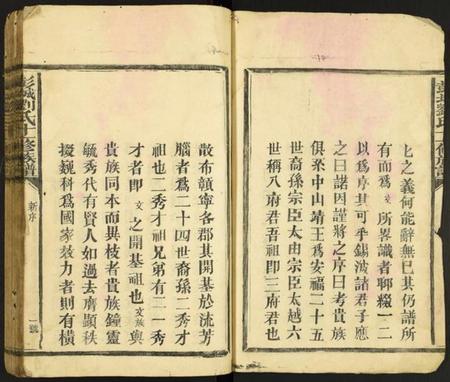 上之義何能辭無已其仍譜所
有而為文所畧識者聊綴一二
以為序其可乎錫波諸君子應
之曰諾因謹將之序曰考貴族
俱來中山靖王為安福二十五
世裔孫宗臣太由宗臣太越六
世稱八府君吾祖即三府君也
彭城劉氏十修族譜
新序
二號
散布贛寧各郡其開基於流芳
腦者為二十四世裔孫二秀才
祖也二秀才祖兄弟有二一秀
才者即文之開基祖也文族與
貴族同本而異枝者貴族鐘靈
毓秀代有賢人如過去膺顯秩
掇巍科為國家效力者則有橫